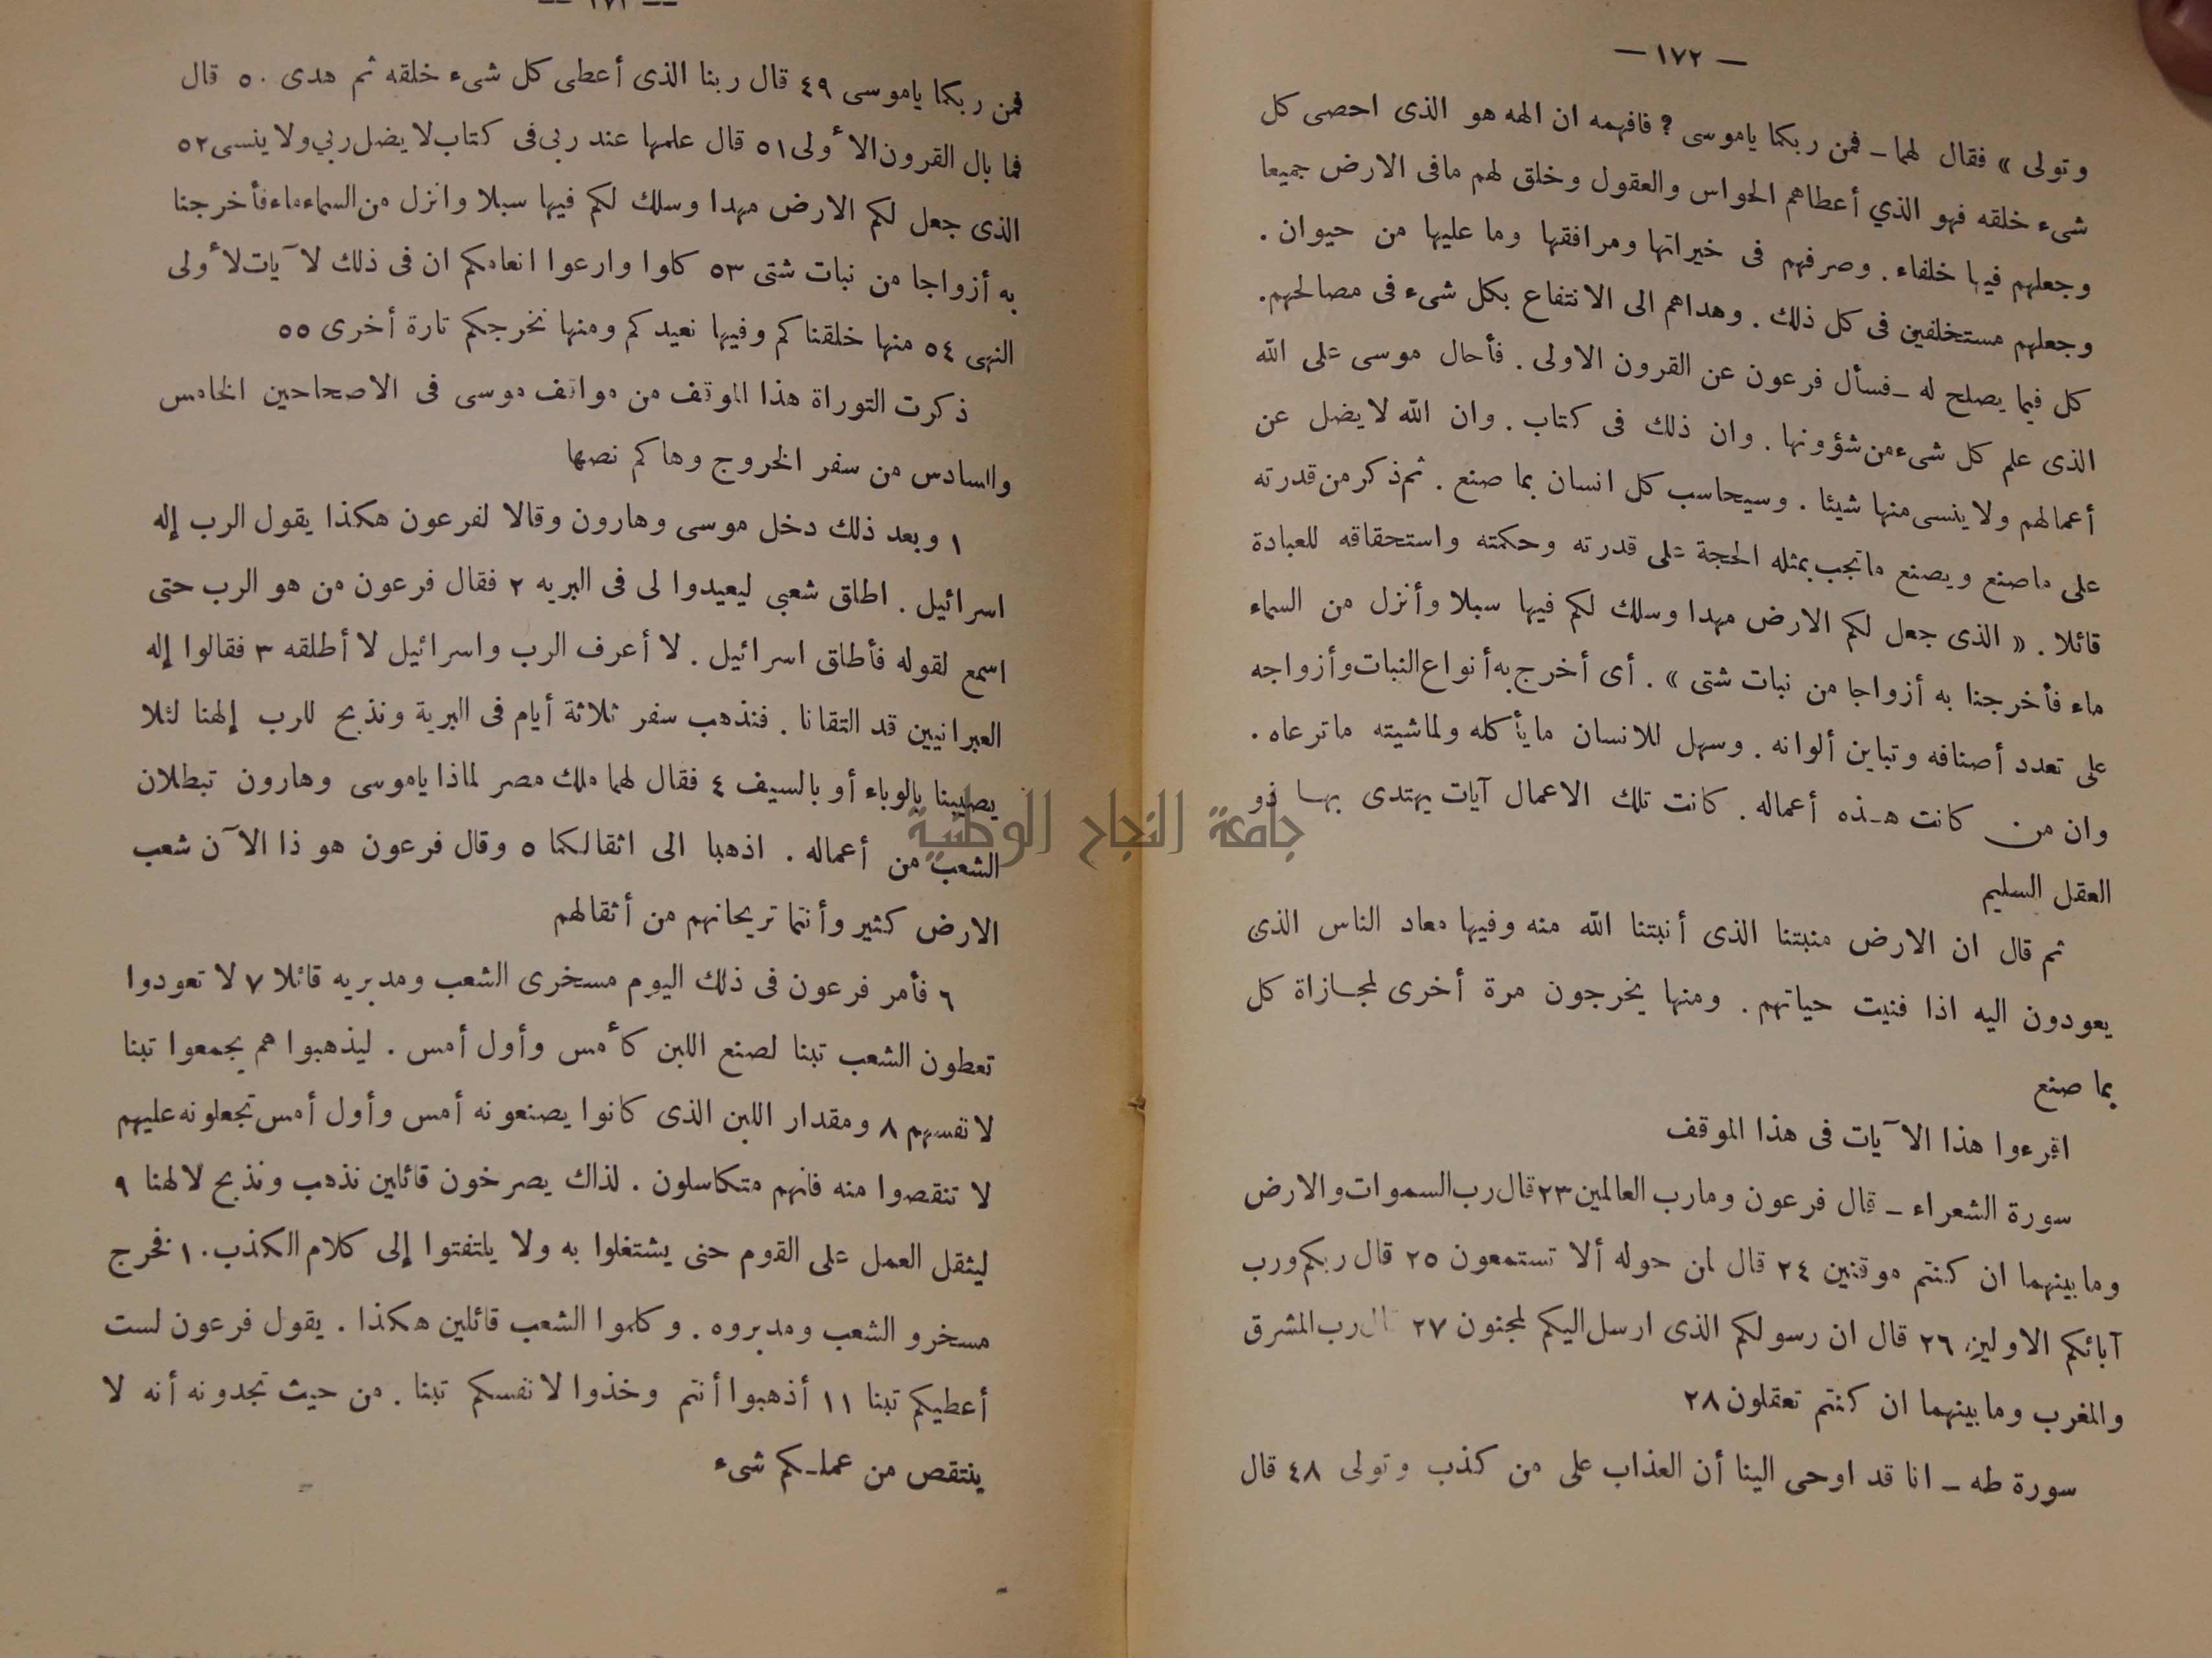 — ١٧٢ —
وتولى » فقال لهما ـ فمن ربكما ياموسى ? فافهمه ان الهه هو الذى احصى كل
شىء خلقه فهو الذي أعطاهم الحواس والعقول وخلق لهم مافى الارض جميعا
وجعلهم فيها خلفاء . وصرفهم فى خيراتها ومرافقها وما عليها من حيوان .
وجعلهم مستخلفين فى كل ذلك . وهداهم الى الانتفاع بكل شىء فى مصالحهم .
كل فيما يصلح له ـ فسأل فرعون عن القرون الاولى . فأحال موسى على الله
الذى علم كل شىء من شؤونها . وان ذلك فى كتاب . وان الله لا يضل عن
أعمالهم ولا ينسى منها شيئا . وسيحاسب كل انسان بما صنع . ثم ذكر من قدرته
على ماصنع ويصنع ماتجب بمثله الحجة على قدرته وحكمته واستحقاقه للعبادة
قائلا . « الذى جعل لكم الارض مهدا وسلك لكم فيها سبلا وأنزل من السماء
ماء فأخرجنا به أزواجا من نبات شتى » . أى أخرج به أنواع النبات وأزواجه
على تعدد أصنافه وتباين ألوانه . وسهل للانسان مايأكله ولماشيته ماترعاه .
وان من كانت هـذه أعماله . كانت تلك الاعمال آيات يهتدى بهـا ذو
العقل السليم
ثم قال ان الارض منبتنا الذى أنبتنا الله منه وفيها معاد الناس الذى
يعودون اليه اذا فنيت حياتهم . ومنها يخرجون مرة أخرى لمجـازاة كل
بما صنع
اقرءوا هذا الآيات فى هذا الموقف
سورة الشعراء ـ قال فرعون ومارب العالمين ٢٣ قال رب السموات والارض
ومابينهما ان كنتم موقنين ٢٤ قال لمن حوله ألا تستمعون ٢٥ قال ربكم ورب
آبائكم الاولين ٢٦ قال ان رسولكم الذى ارسل اليكم لمجنون ٢٧ قال رب المشرق
والمغرب ومابينهما ان كنتم تعقلون ٢٨
سورة طه ـ انا قد اوحى الينا أن العذاب على من كذب وتولى ٤٨ قال
فمن ربكما ياموسى ٤٩ قال ربنا الذى أعطى كل شىء خلقه ثم هدى ٥٠ قال
فما بال القرون الأولى ٥١ قال علمها عند ربى فى كتاب لا يضل ربي ولا ينسى ٥٢
الذى جعل لكم الارض مهدا وسلك لكم فيها سبلا وانزل من السماء ماء فأخرجنا
به أزواجا من نبات شتى ٥٣ كلوا وارعوا انعامكم ان فى ذلك لآيات لأولى
النهى ٥٤ منها خلقناكم وفيها نعيدكم ومنها نخرجكم تارة أخرى ٥٥
ذكرت التوراة هذا الموقف من مواقف موسى فى الاصحاحين الخامس
والسادس من سفر الخروج وهاكم نصها
١ وبعد ذلك دخل موسى وهارون وقالا لفرعون هكذا يقول الرب إله
اسرائيل . اطلق شعبى ليعيدوا لى فى البريه ٢ فقال فرعون من هو الرب حتى
اسمع لقوله فأطلق اسرائيل . لا أعرف الرب واسرائيل لا أطلقه ٣ فقالوا إله
العبرانيين قد التقانا . فنذهب سفر ثلاثة أيام فى البرية ونذبح للرب إلهنا لئلا
يصيبنا بالوباء أو بالسيف ٤ فقال لهما ملك مصر لماذا ياموسى وهارون تبطلان
الشعب من أعماله . اذهبا الى اثقالكما ٥ وقال فرعون هو ذا الآن شعب
الارض كثير وأنتما تريحانهم من أثقالهم
٦ فأمر فرعون فى ذلك اليوم مسخرى الشعب ومدبريه قائلا ٧ لا تعودوا
تعطون الشعب تبنا لصنع اللبن كأمس وأول أمس . ليذهبوا هم يجمعوا تبنا
لانفسهم ٨ ومقدار اللبن الذى كانوا يصنعونه أمس وأول أمس تجعلونه عليهم
لا تنقصوا منه فانهم متكاسلون . لذلك يصرخون قائلين نذهب ونذبح لالهنا ٩
ليثقل العمل على القوم حتى يشتغلوا به ولا يلتفتوا إلى كلام الكذب ١٠ فخرج
مسخرو الشعب ومدبروه . وكلموا الشعب قائلين هكذا . يقول فرعون لست
أعطيكم تبنا ١١ أذهبوا أنتم وخذوا لانفسكم تبنا . من حيث تجدونه أنه لا
ينتقص من عملـكم شىء
جامعة النجاح الوطنية